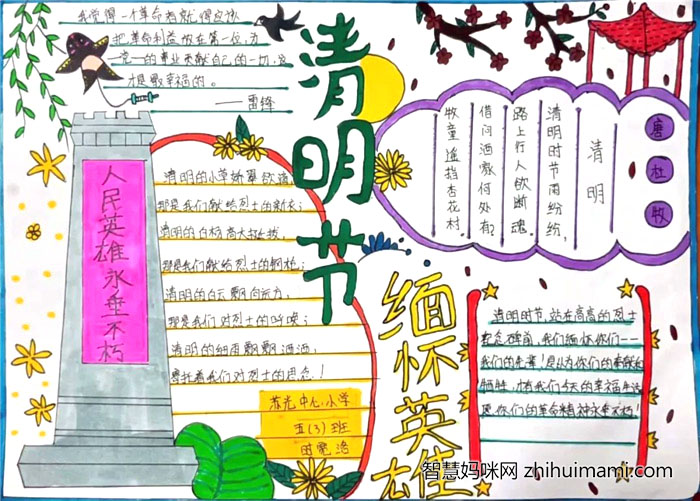 我觉得一个革命者就得应该
把革命利益放在第一位,为
党一的事业贡献自己的一切,这
才是最幸福的。
——雷锋
清明节
清明
唐
杜
牧
清明时节雨纷纷,
路上行人欲断魂。
借问酒家何处有?
牧童遥指杏花村。
人民英雄永垂不朽
清明的小草娇翠欲滴,
那是我们献给烈士的新衣;
清明的白杨高大挺拔,
那是我们献给烈士的钢枪;
清明的白云飘向远方,
那是我们对烈士的呼唤;
清明的细雨飘飘洒洒,
寄托着我们对烈士的思念!
中心小学
五(3)班
缅怀英雄
清明时节,站在高高的烈士
纪念碑前,我们缅怀你们——
我们的先辈!是认为你们的奉献和
牺牲,才有我们今天的幸福生活
愿你们的革命精神永垂不朽!
智慧妈咪网 zhihuimami.com